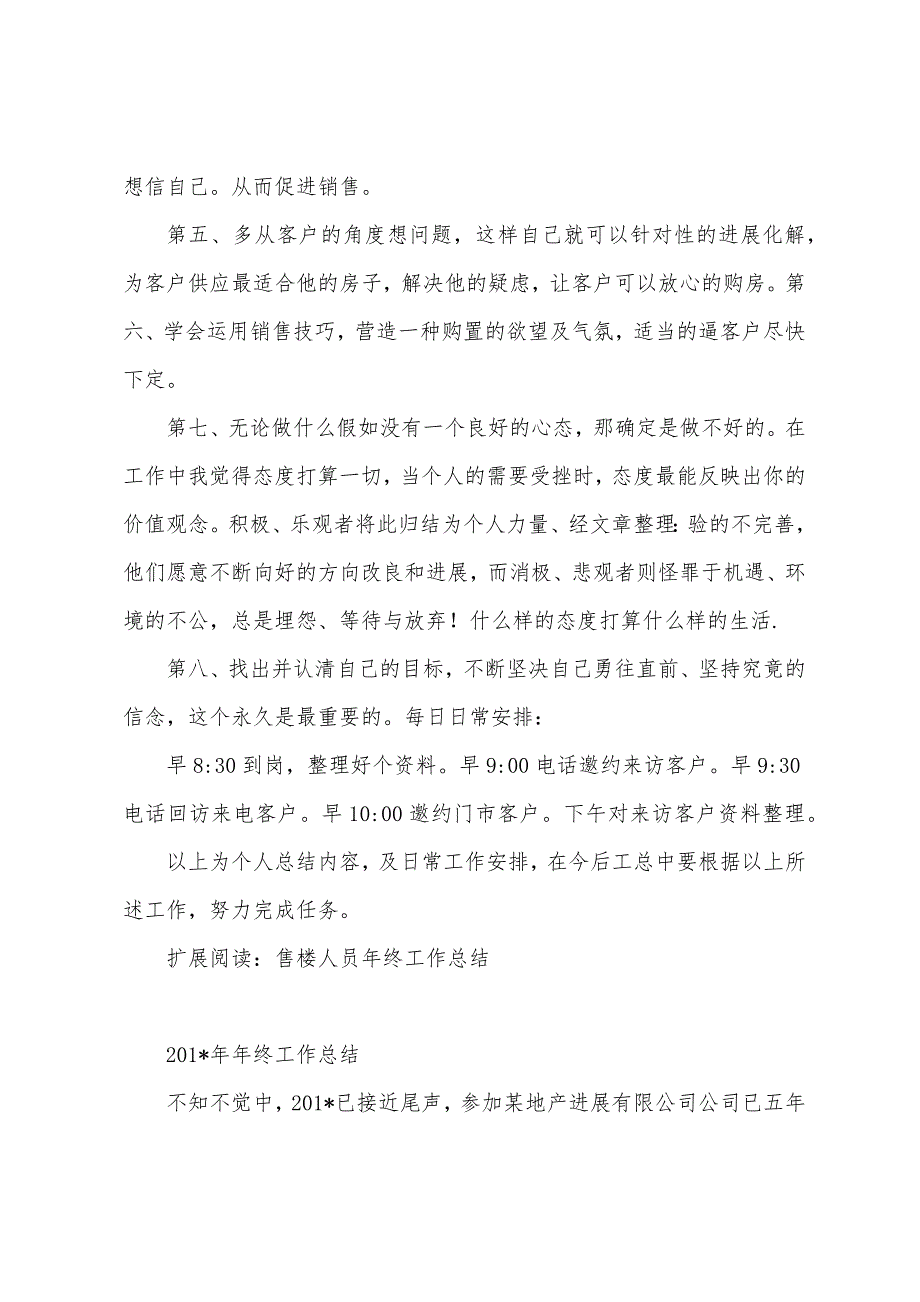 想信自己。从而促进销售。
第五、多从客户的角度想问题，这样自己就可以针对性的进展化解，
为客户供应最适合他的房子，解决他的疑虑，让客户可以放心的购房。第
六、学会运用销售技巧，营造一种购置的欲望及气氛，适当的逼客户尽快
下定。
第七、无论做什么假如没有一个良好的心态，那确定是做不好的。在
工作中我觉得态度打算一切，当个人的需要受挫时，态度最能反映出你的
价值观念。积极、乐观者将此归结为个人力量、经文章整理：验的不完善，
他们愿意不断向好的方向改良和进展，而消极、悲观者则怪罪于机遇、环
境的不公，总是埋怨、等待与放弃！什么样的态度打算什么样的生活.
第八、找出并认清自己的目标，不断坚决自己勇往直前、坚持究竟的
信念，这个永久是最重要的。每日日常安排：
早 8:30 到岗，整理好个资料。早 9:00 电话邀约来访客户。早 9:30
电话回访来电客户。早 10:00 邀约门市客户。下午对来访客户资料整理。
以上为个人总结内容，及日常工作安排，在今后工总中要根据以上所
述工作，努力完成任务。
扩展阅读：售楼人员年终工作总结
201*年年终工作总结
不知不觉中，201*已接近尾声，参加某地产进展有限公司公司已五年